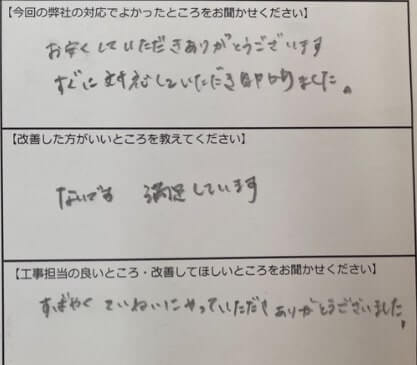 【今回の弊社の対応でよかったところをお聞かせください】
お安くしていただきありがとうございます
すぐに対応していただき助かりました。
【改善した方がいいところを教えてください】
ないです 満足しています
【工事担当の良いところ・改善してほしいところをお聞かせください】
すばやく ていねいにやっていただき ありがとうございました!